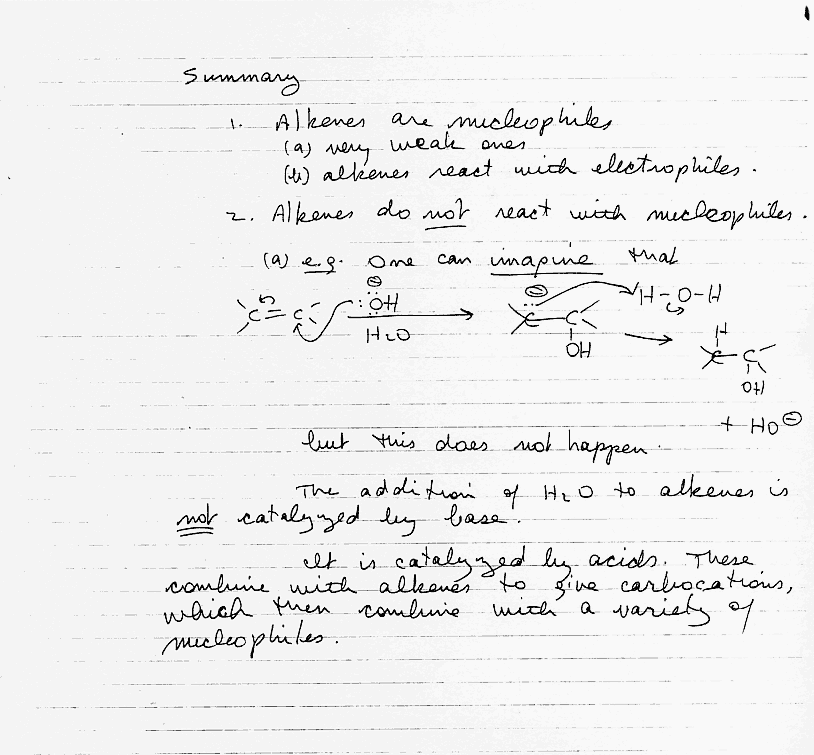 Summary
1. Alkenes are nucleophiles
(a) very weak ones
(b) alkenes react with electrophiles.
2. Alkenes do not react with nucleophiles.
(a) e.g. One can imagine that
C=C :ÖH ⊖ H2O → ⊖ C-C OH H-O-H → H C-C OH
+ HO⊖
but this does not happen.
The addition of H2O to alkenes is
not catalyzed by base.
It is catalyzed by acids. These
combine with alkenes to give carbocations,
which then combine with a variety of
nucleophiles.